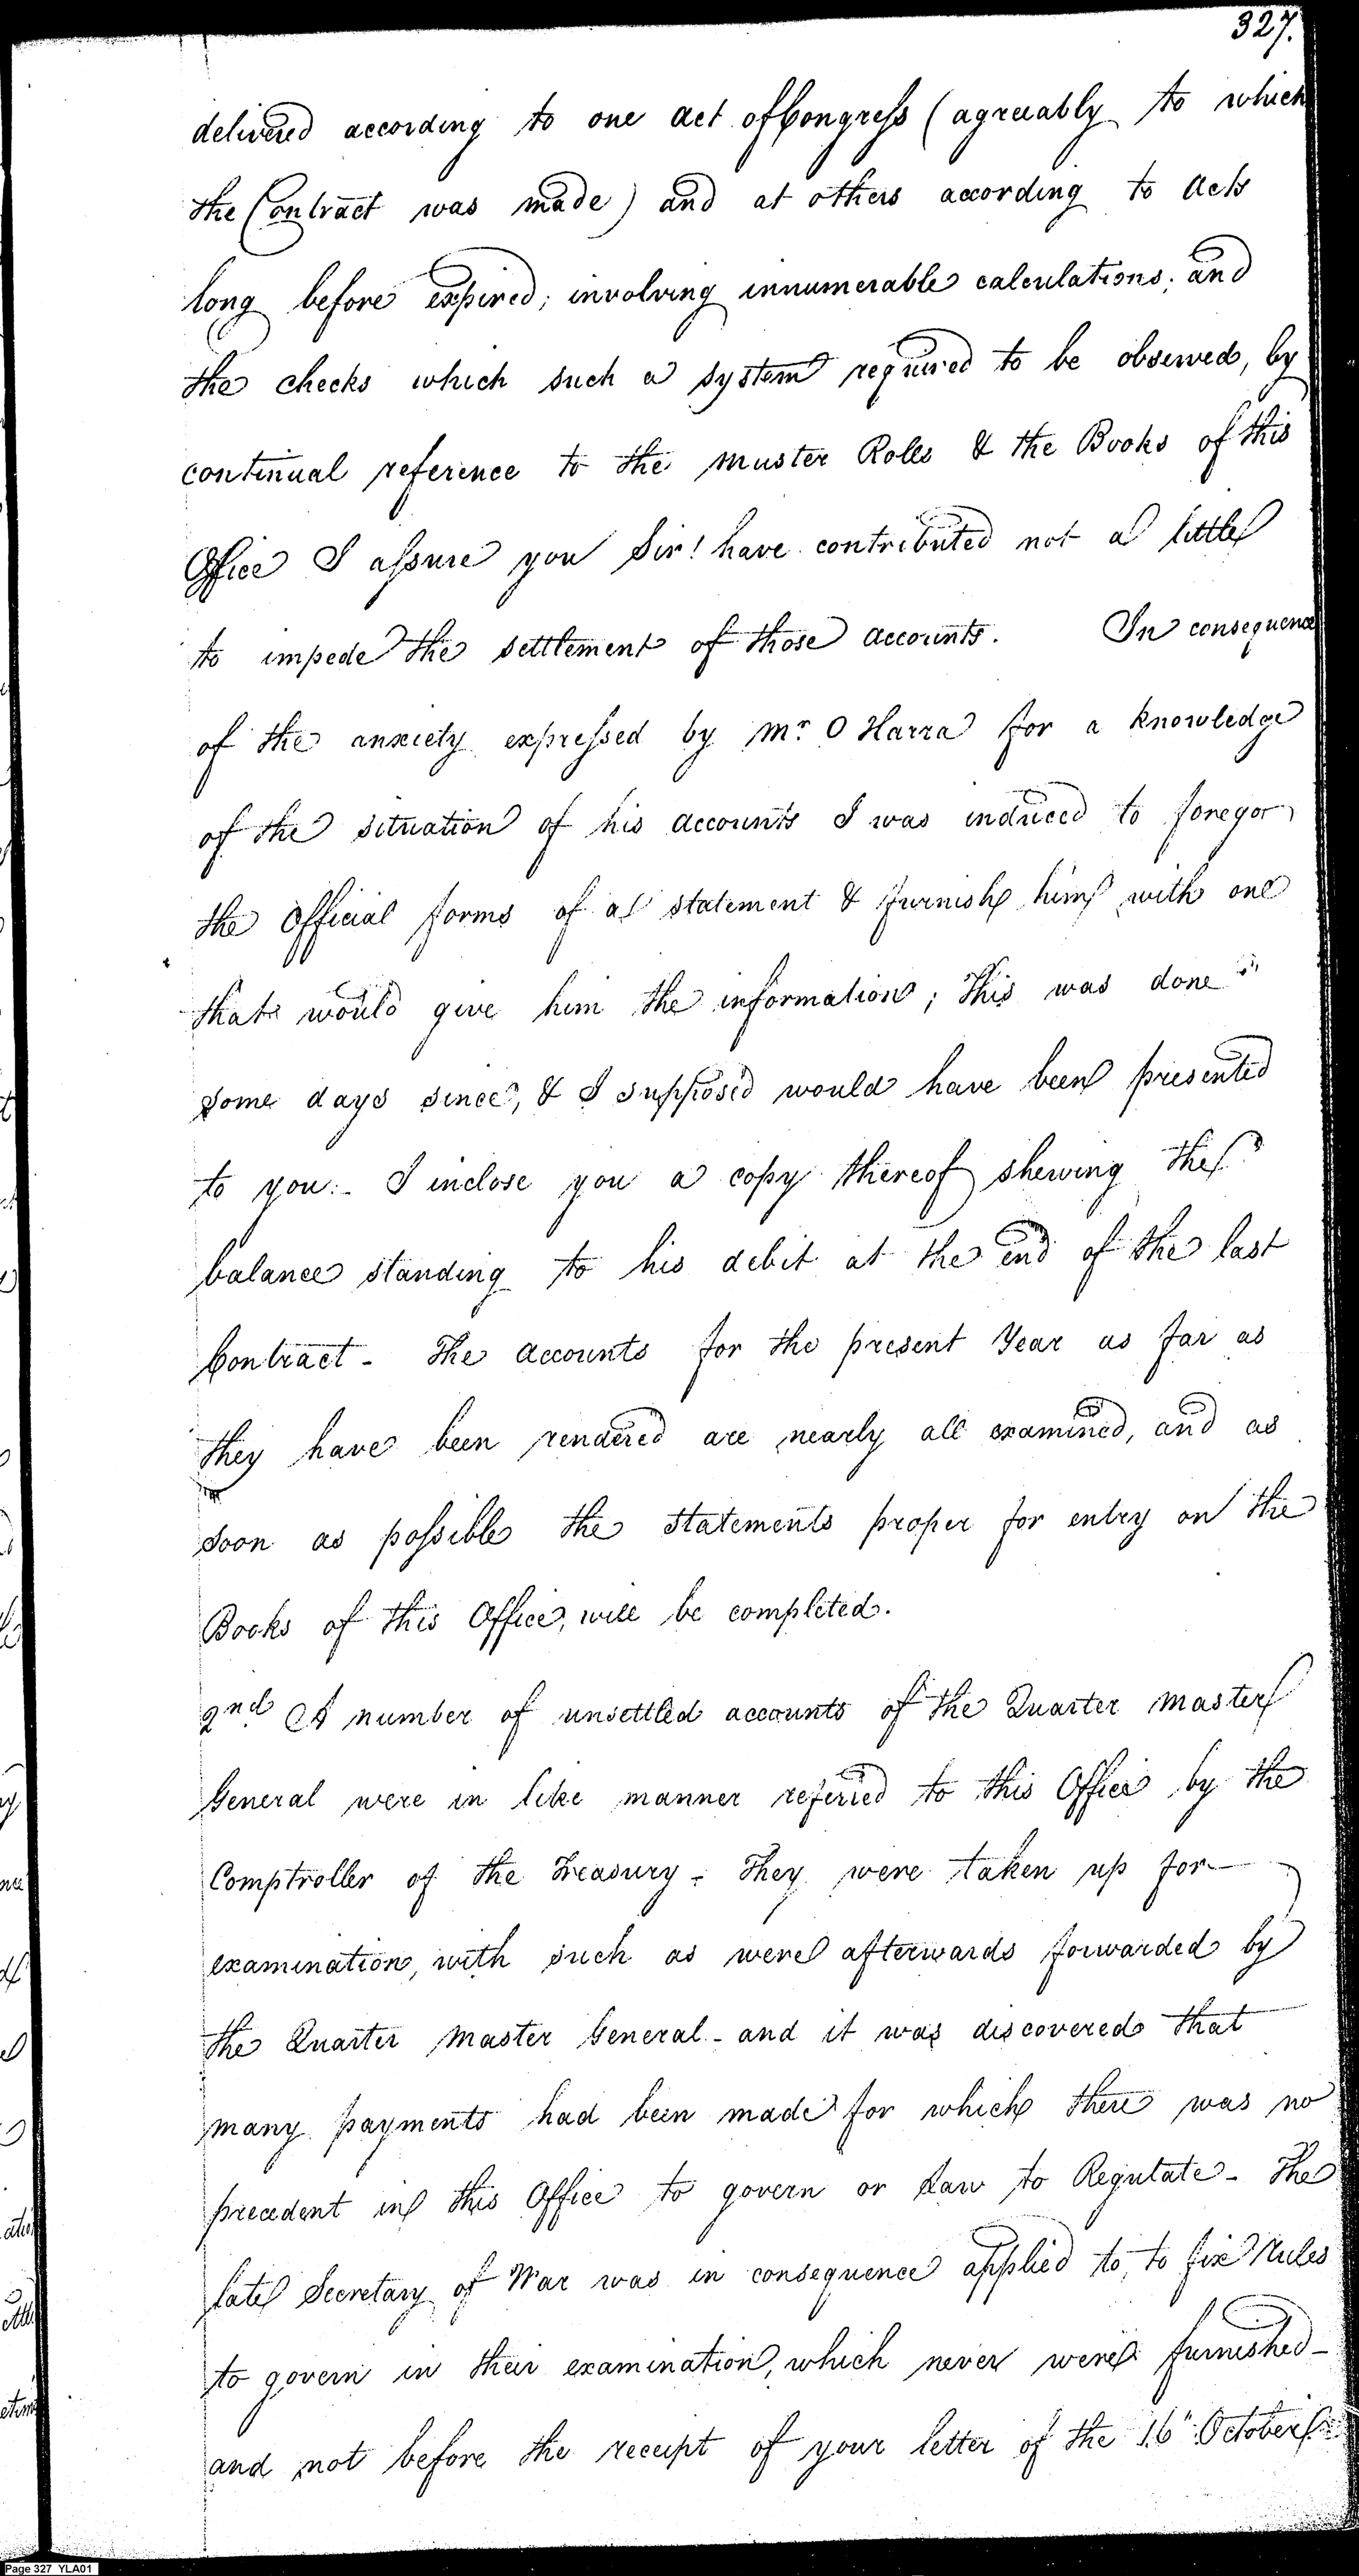 327.
delivered according to one Act of Congress (agreeably to which
the Contract was made) and at others according to Acts
long before expired; involving innumerable calculations; and
the checks which such a system required to be observed, by
continual reference to the Muster Rolls & the Books of this
Office I assure you Sir! have contributed not a little
to impede the settlement of those accounts. In consequence
of the anxiety expressed by Mr O Harra for a knowledge
of the situation of his accounts I was induced to foregor
the Official forms of a statement & furnish him with one
that would give him the information; This was done
some days since, & I supposed would have been presented
to you:- I inclose you a copy thereof shewing the
balance standing to his debit at the end of the last
Contract - The accounts for the present Year as far as
they have been rendered are nearly all examined, and as
soon as possible the statements proper for entry on the
Books of this Office, will be completed.
2nd A number of unsettled accounts of the Quarter Master
General were in like manner referred to this Office by the
Comptroller of the Treasury - They were taken up for
examination, with such as were afterwards forwarded by
the Quarter Master General - and it was discovered that
many payments had been made for which there was no
precedent in this Office to govern or Law to Regulate - The
late Secretary of War was in consequence applied to, to fix Rules
to govern in their examination, which never were furnished -
and not before the receipt of your letter of the 16" October
Page 327 YLA01